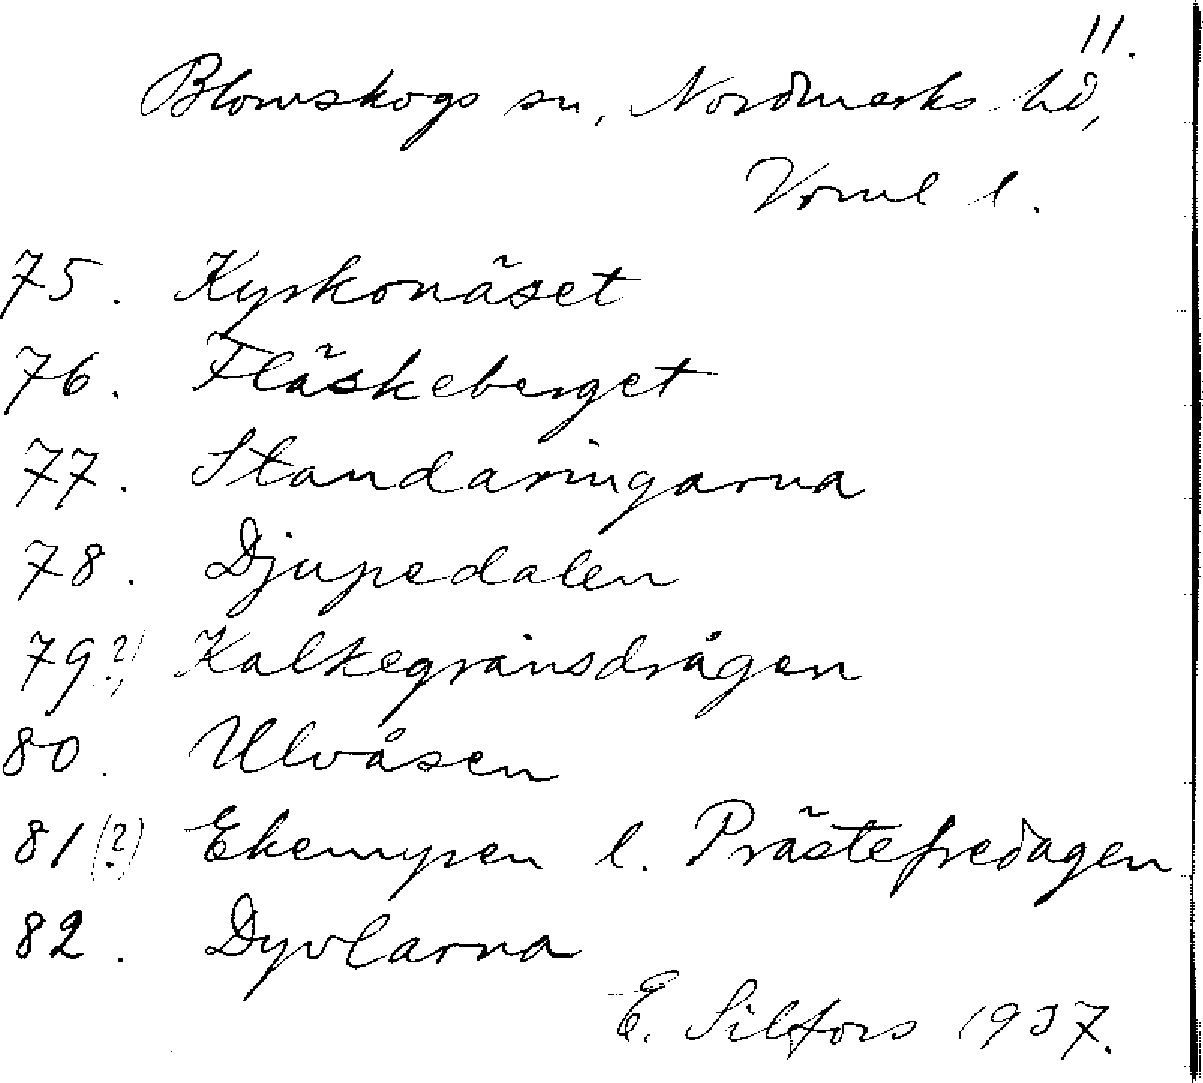 11.
Blomskogs sn, Nordmarks hd,
Vrml l.
75. Kyrkonäset
76. Fläskeberget
77. Standaringarna
78. Djupedalen
79(?) Kalkegränsdrågen
80. Ulvåsen
81(?) Ekemyren l. Prästefredagen
82. Dyvlarna
E. Silfors 1937.